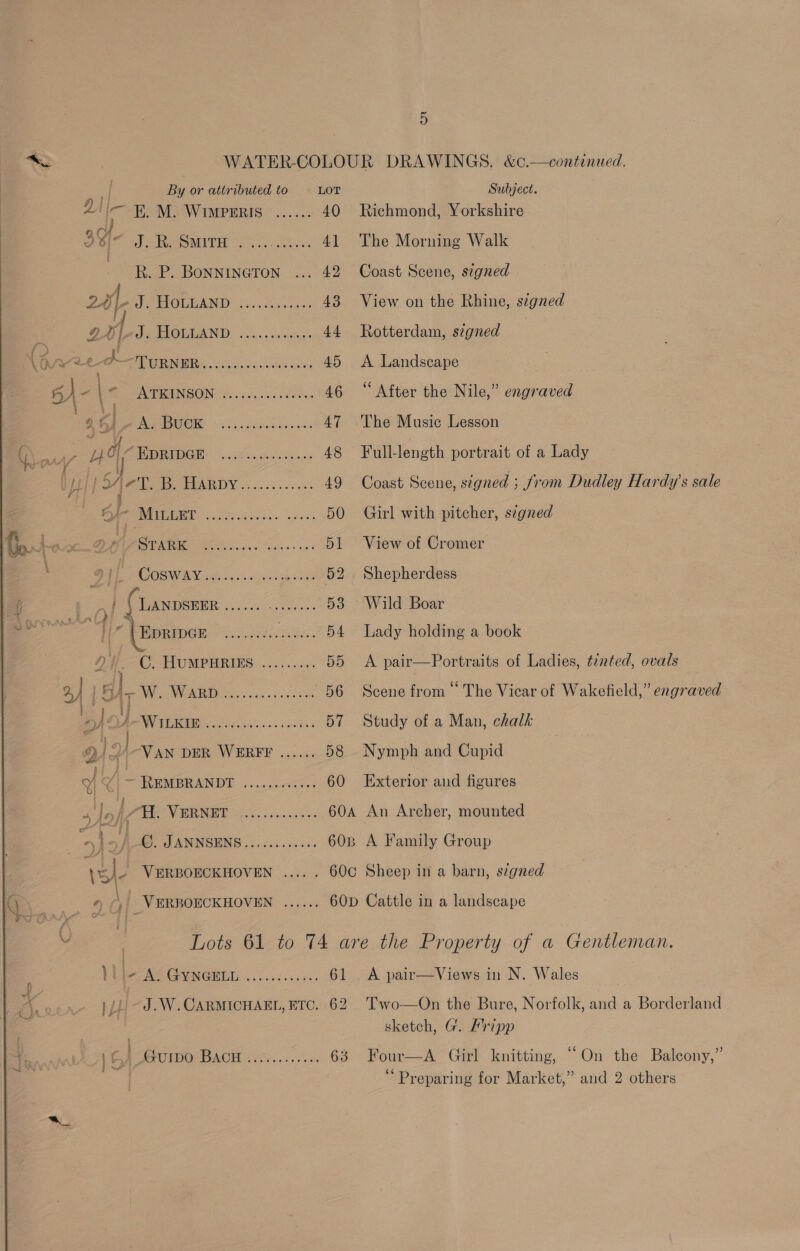 5
WATER-COLOUR DRAWINGS. &c.—continued.
By or attributed to LOT Subject.
21/- E. M. WIMPERIS ...... 40 Richmond, Yorkshire
38/- J. R. SMITH ............ 41 The Morning Walk
R. P. BONNINGTON ... 42 Coast Scene, signed
J. HOLLAND ............ 43 View on the Rhine, signed
J. HOLLAND ............ 44 Rotterdam, signed
TURNER .................. 45 A Landscape
ATKINSON ............... 46 “After the Nile,” engraved
A. BUCK ............... 47 The Music Lesson
EDRIDGE ............... 48 Full-length portrait of a Lady
T. B. HARDY ............ 49 Coast Scene, signed ; from Dudley Hardy's sale
MILLET .................. 50 Girl with pitcher, signed
STARK .................. 51 View of Cromer
COSWAY .................. 52 Shepherdess
LANDSEER ............... 53 Wild Boar
EDRIDGE ............... 54 Lady holding a book
C. HUMPHRIES ......... 55 A pair—Portraits of Ladies, tinted, ovals
W. WARD ............... 56 Scene from “The Vicar of Wakefield,” engraved
WILKIE .................. 57 Study of a Man, chalk
VAN DER WERFF ...... 58 Nymph and Cupid
REMBRANDT ............ 60 Exterior and figures
H. VERNET ............ 60A An Archer, mounted
C. JANNSENS ............ 60B A Family Group
15/- VERBOECKHOVEN ...... 60C Sheep in a barn, signed
VERBOECKHOVEN ...... 60D Cattle in a landscape
Lots 61 to 74 are the Property of a Gentleman.
11/- A. GYNGELL ............ 61 A pair—Views in N. Wales
J. W. CARMICHAEL, ETC. 62 Two—On the Bure, Norfolk, and a Borderland
sketch, G. Fripp
GUIDO BACH ............ 63 Four—A Girl knitting, “On the Balcony,”
“Preparing for Market,” and 2 others